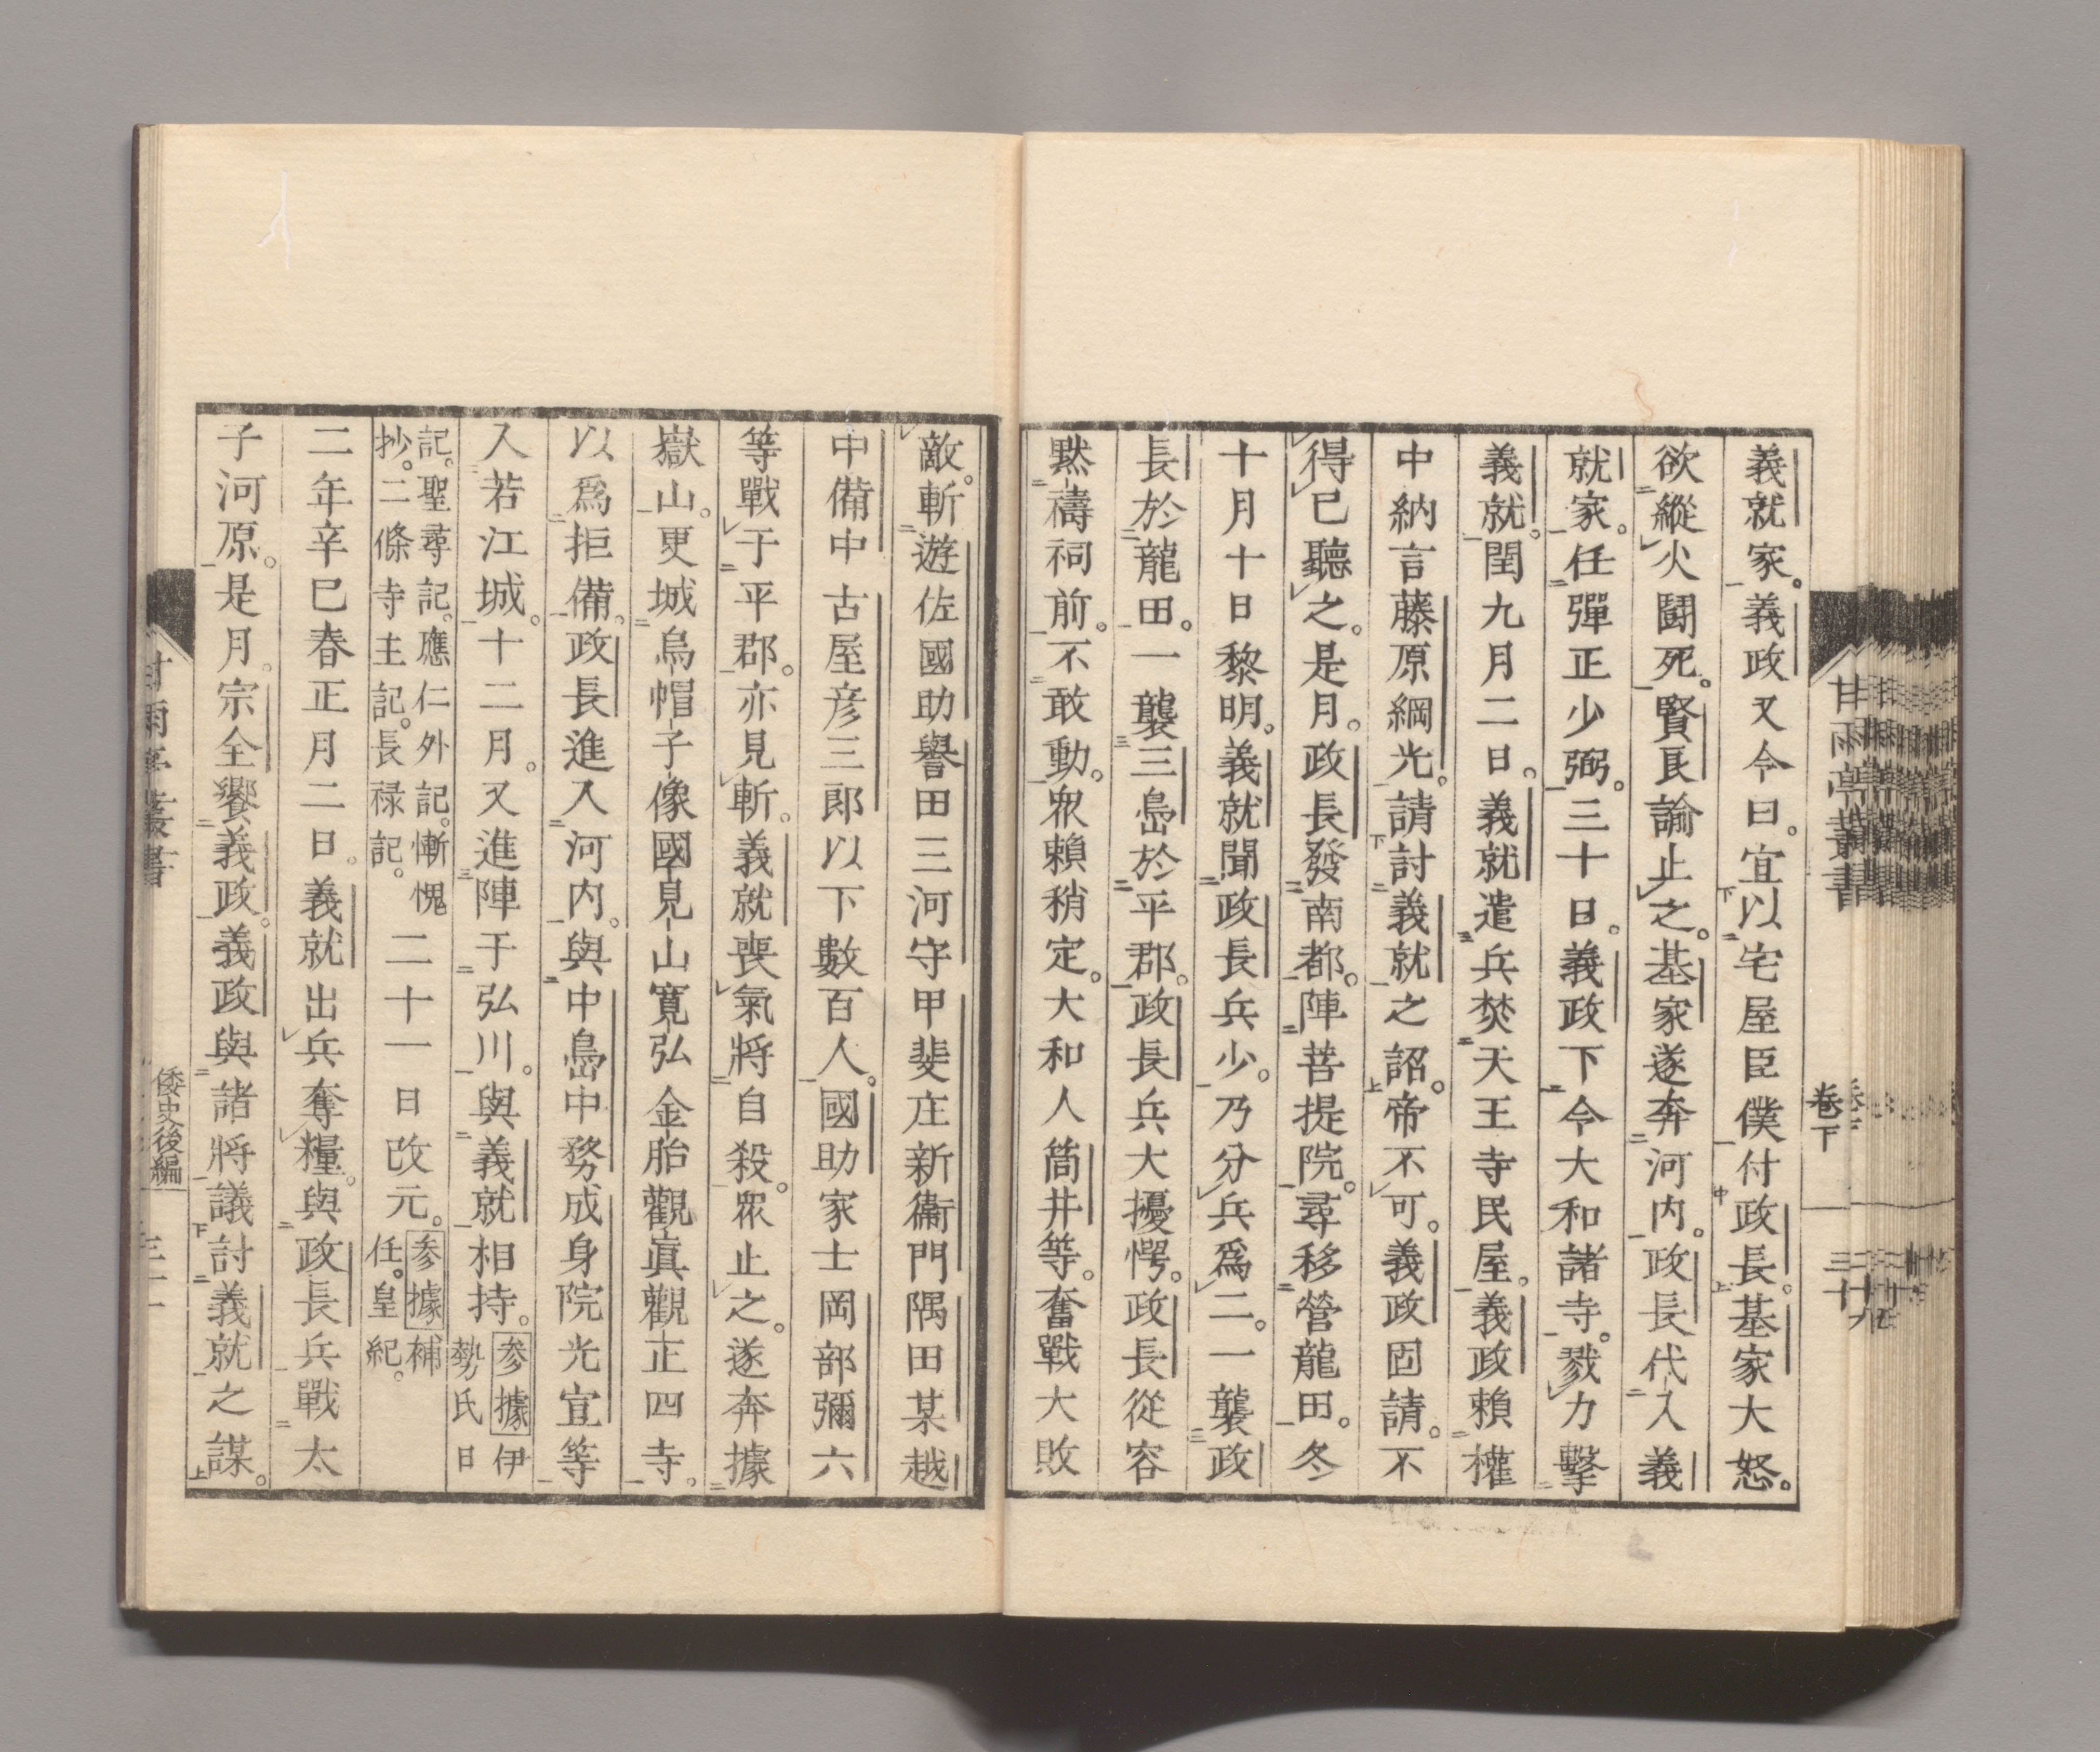 甘雨亭叢書
卷下
三十
義就家。義政又令曰。宜以宅屋臣僕付政長。基家大怒。
欲縱火鬪死。賢良諭止之。基家遂奔河内。政長代入義
就家。任彈正少弼。三十日。義政下令大和諸寺。戮力擊
義就。閏九月二日。義就遣兵焚天王寺民屋。義政賴權
中納言藤原綱光。請討義就之詔。帝不可。義政固請。不
得已聽之。是月。政長發南都。陣菩提院。尋移營龍田。冬
十月十日黎明。義就聞政長兵少。乃分兵爲二。一襲政
長於龍田。一襲三島於平郡。政長兵大擾愕。政長從容
黙禱祠前。不敢動。衆賴稍定。大和人筒井等。奮戰大敗
敵。斬遊佐國助譽田三河守甲斐庄新衞門隅田某越
中備中古屋彦三郎以下數百人。國助家士岡部彌六
等戰于平郡。亦見斬。義就喪氣將自殺。衆止之。遂奔據
嶽山。更城烏帽子像國見山寬弘金胎觀眞觀正四寺。
以爲拒備。政長進入河内。與中島中務成身院光宣等
入若江城。十二月。又進陣于弘川。與義就相持。参據伊勢氏日
記。聖尋記。應仁外記。慚愧抄。二條寺主記。長禄記。二十一日改元。参據補任。皇紀。
二年辛巳春正月二日。義就出兵奪糧。與政長兵戰太
子河原。是月。宗全饗義政。義政與諸將議討義就之謀。
甘雨亭叢書
倭史後編